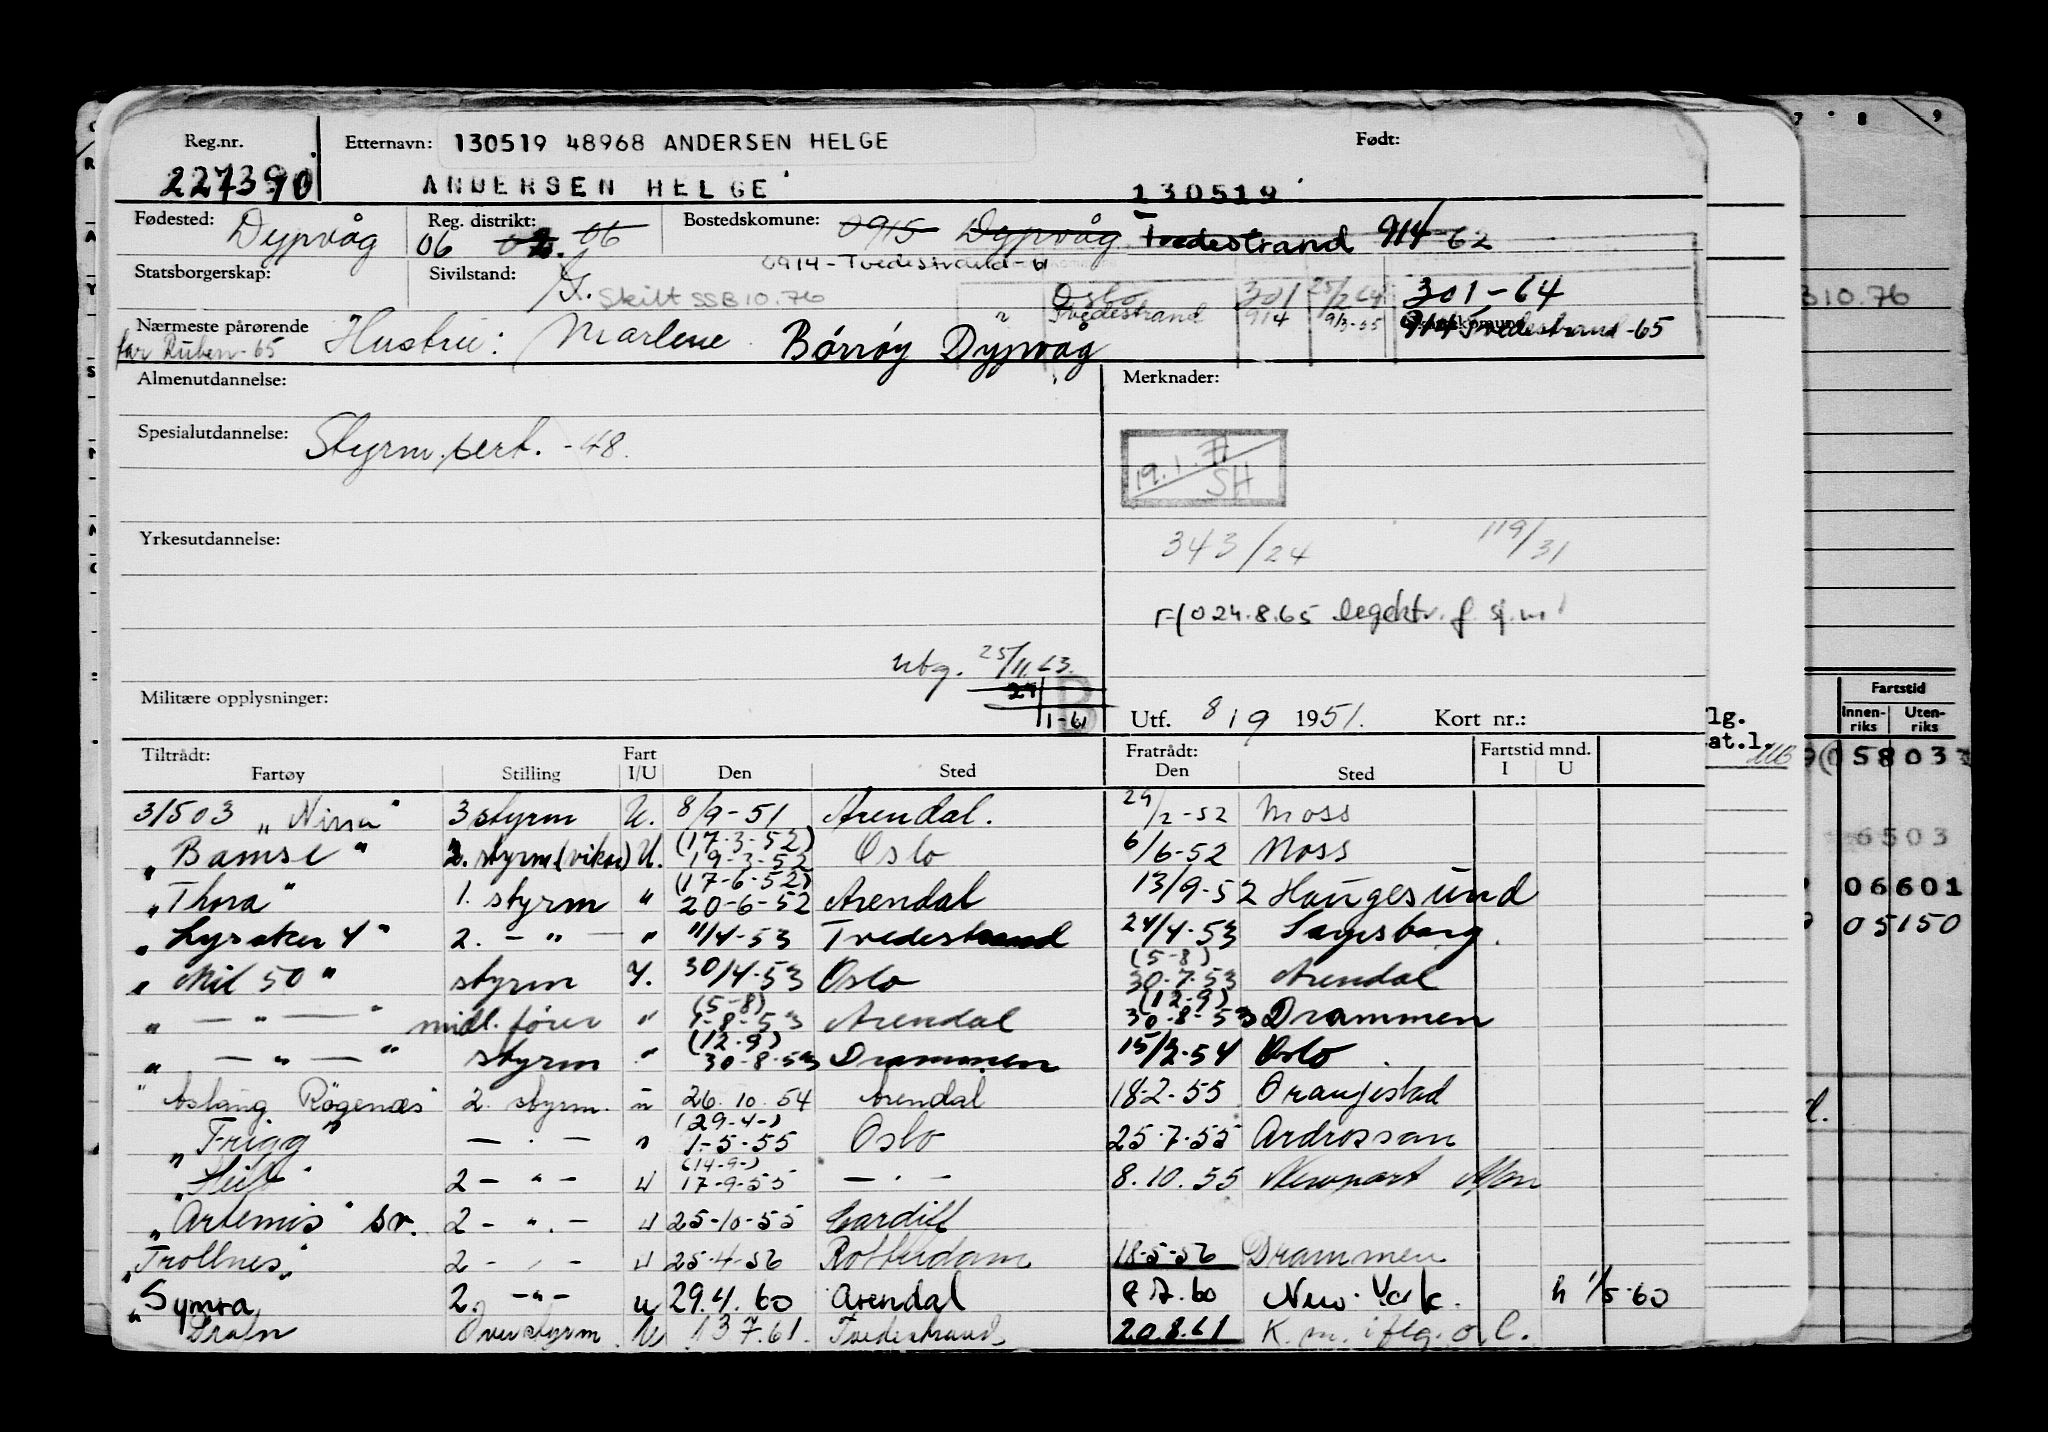 Reg.nr. Etternavn: 130519 48968 ANDERSEN HELGE Født:
227390 ANDERSEN HELGE 130519
Fødested: Dypvåg Reg. distrikt: 06 06 Bostedskomune: 0915 Dypvåg Tvedestrand 914 62
0914-Tvedestrand-
Statsborgerskap: Sivilstand: G. Skilt SSB 10.76 Oslo 301 25/2 64 301-64
Tvedestrand 914 9/3-65 914 Tvedestrand-65
Nærmeste pårørende Hustru: Marlene Børrøy Dypvåg
far Ruben-65
Almenutdannelse: Merknader:
Spesialutdannelse: Styrm.sert. -48.
19.1.71
SH
Yrkesutdannelse: 343/24 119/31
24.8.65 legektr. f. sj.m
utg. 25/11.63.
Militære opplysninger: 1-61 B Utf. 8/9 1951. Kort nr.:
Tiltrådt: Fart Fratrådt: Fartstid mnd.
Fartøy Stilling I/U Den Sted Den Sted I U
31503 „Nirva" 3 styrm U. 8/9-51 Arendal. 29/2-52 Moss
„Bamse" 2. styrm (vikar) U. (17-3-52) 19-3-52 Oslo 6/6-52 Moss
„Thora" 1. styrm " (17-6-52) 20-6-52 Arendal 13/9-52 Haugesund
„Lysaker 4" 2. - " - " 11/4-53 Tvedestrand 24/4-53 Sarpsborg.
„Mil 50" styrm I. 30/4-53 Oslo (5-8) 30-7-53 Arendal
„ — " — " midl. fører " (5-8) 1-8-53 Arendal (12-9) 30-8-53 Drammen
„ — " — " styrm " (12-9) 30-8-53 Drammen 15/2-54 Oslo
"Aslaug Rögenæs 2. styrm. u 26.10.54 Arendal 18-2-55 Oranjestad
„Frigg" — " — " (29-4-) 1-5-55 Oslo 25-7-55 Ardrossan
2 - " - U (14-9-) 17-9-55 — " — 8.10.55 Newport Mon
„Artemis" sv. 2 - " - U 25-10-55 Cardiff
„Trollnes" 2 - " - U 25-4-56 Rotterdam 18-5-56 Drammen
„Symra 2. - " - u 29.4.60 Arendal 8.7.60 New York. h 1/5-60
Overstyrm. U 13 7.61. Tvedestrand 20.8.61 K.m. iflg. o.l.
7 8 9
310.76
Fartstid
Innen-riks Uten-riks
lg.
at.l.
058037
6503
06601
05150
d.